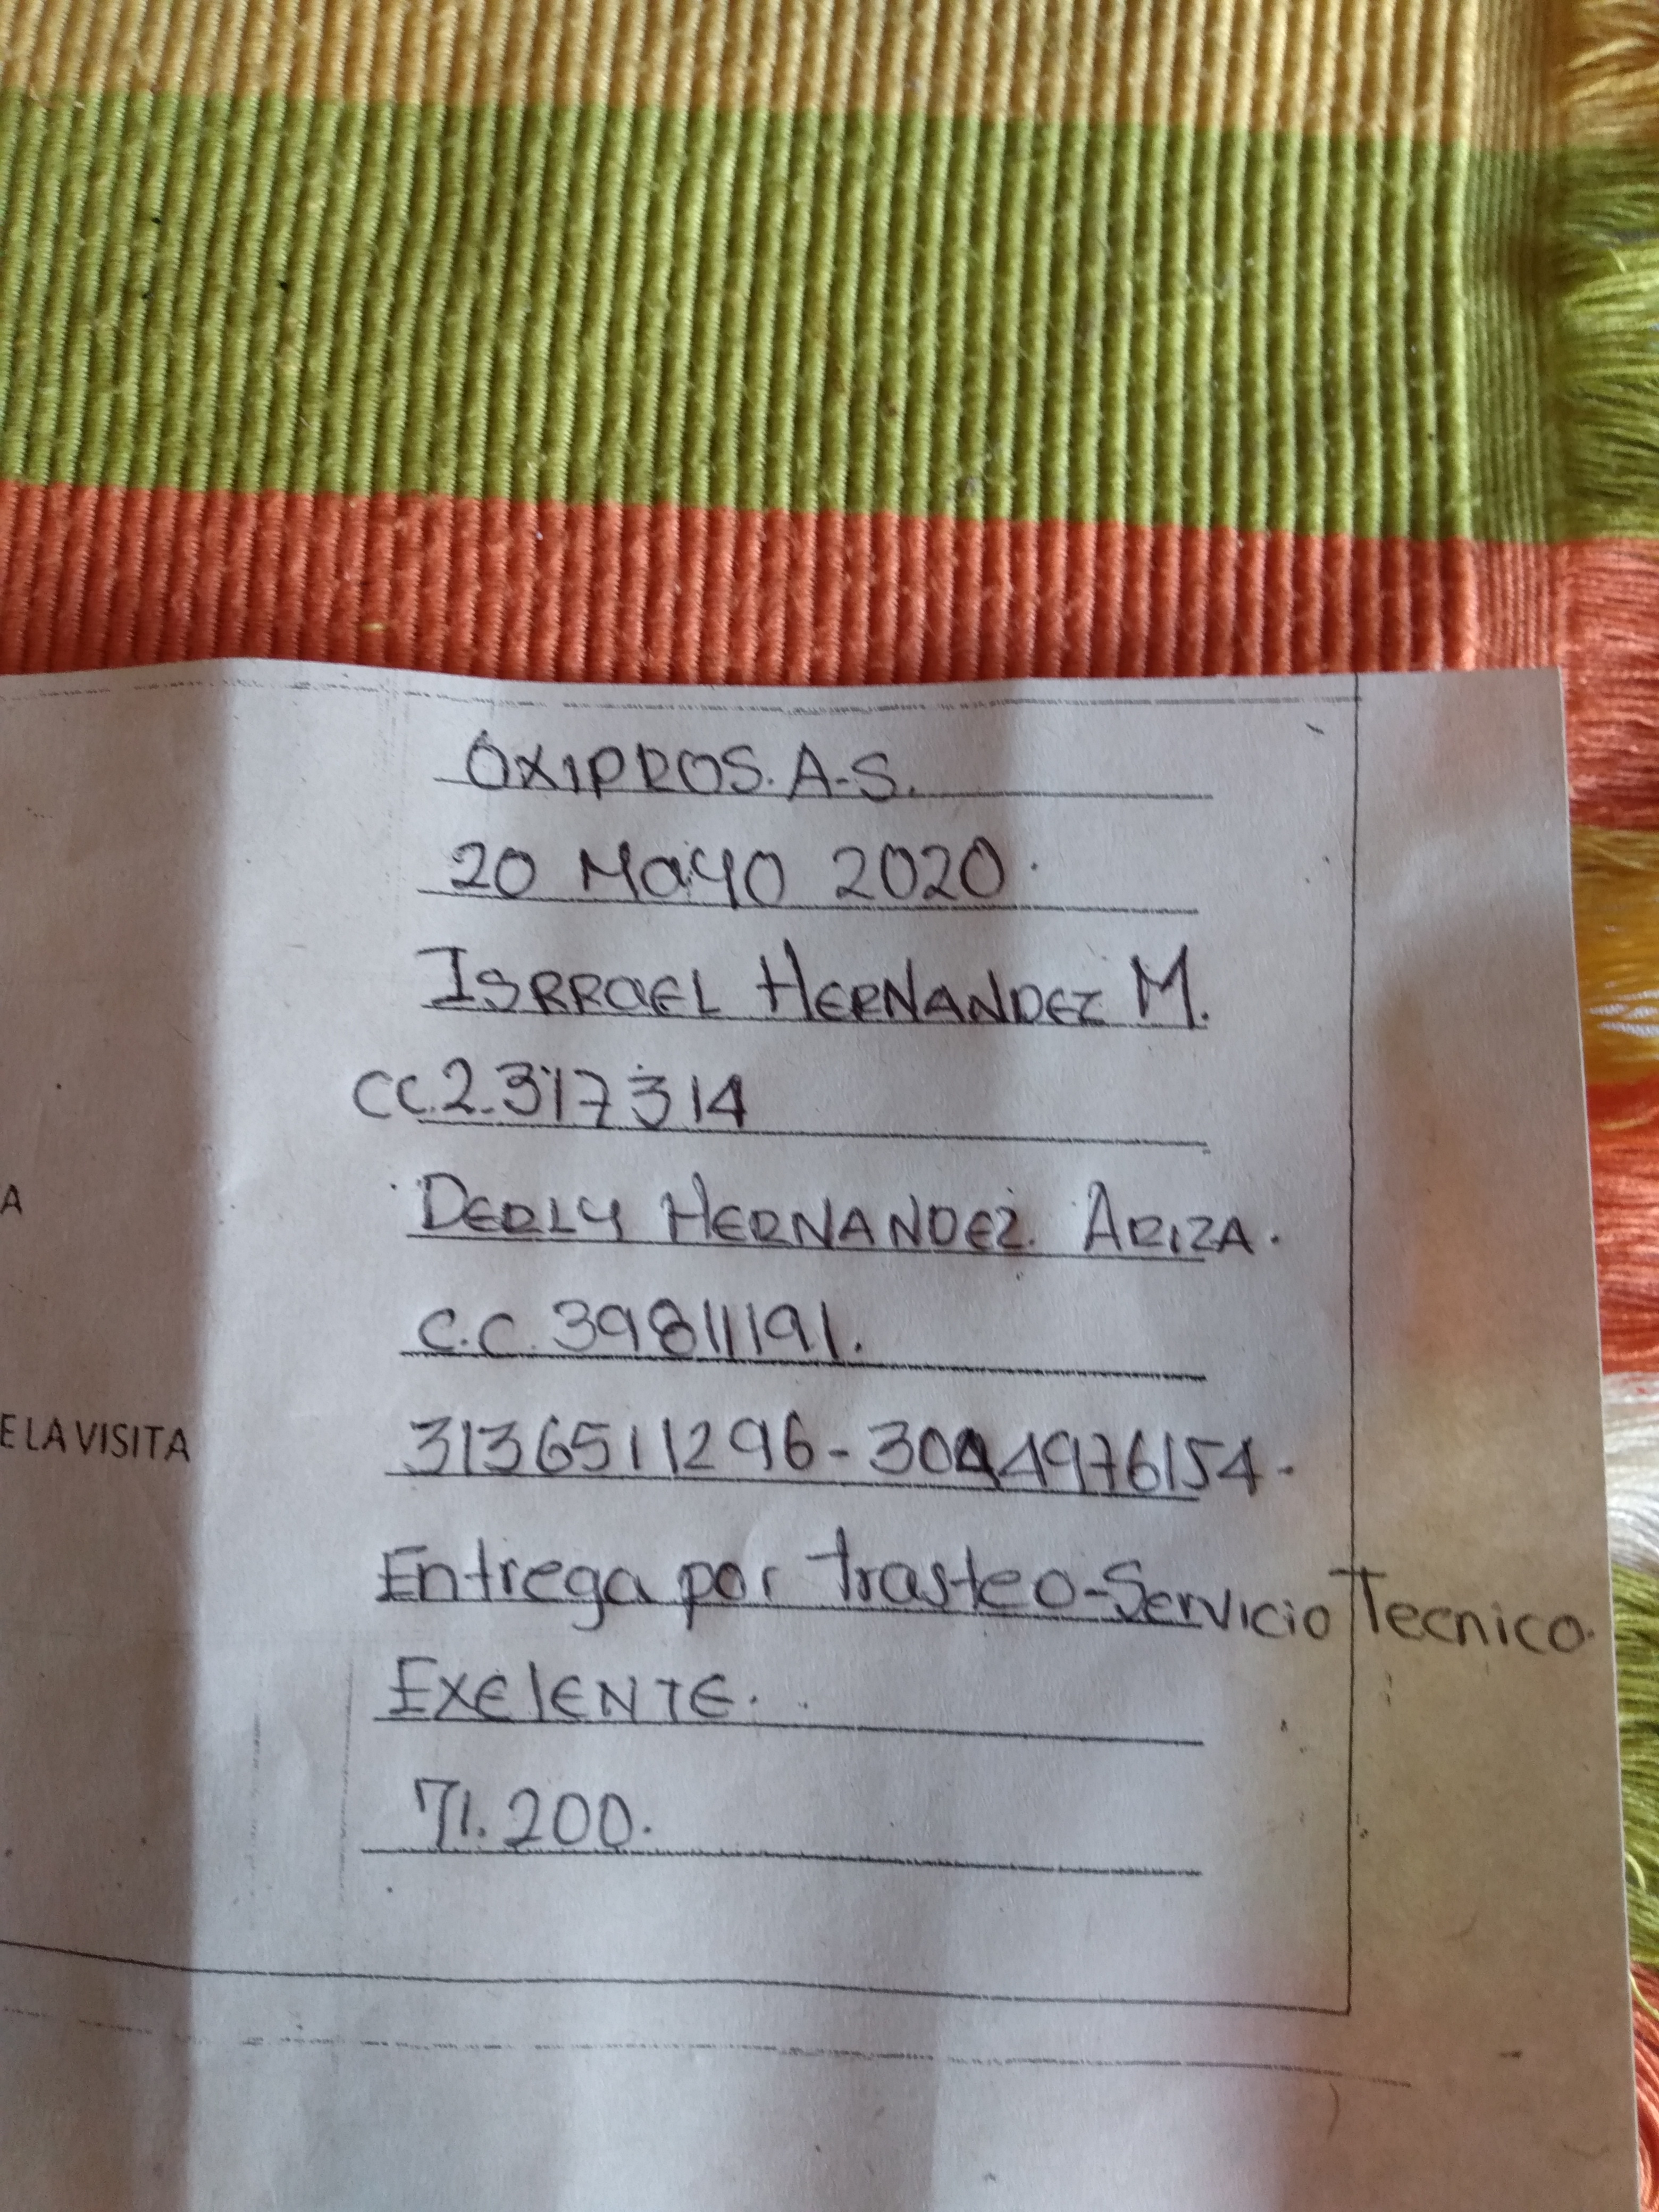 OXIPROS.A-S.
20 Mayo 2020.
ISRRaEL HERNANDEZ M.
CC.2.317314
DERLY HERNANDEZ. ARIZA.
A
C.C.39811191.
3136511296-3044976154.
E LA VISITA
Entrega por trasteo-Servicio Tecnico.
EXElENTE.
71.200.